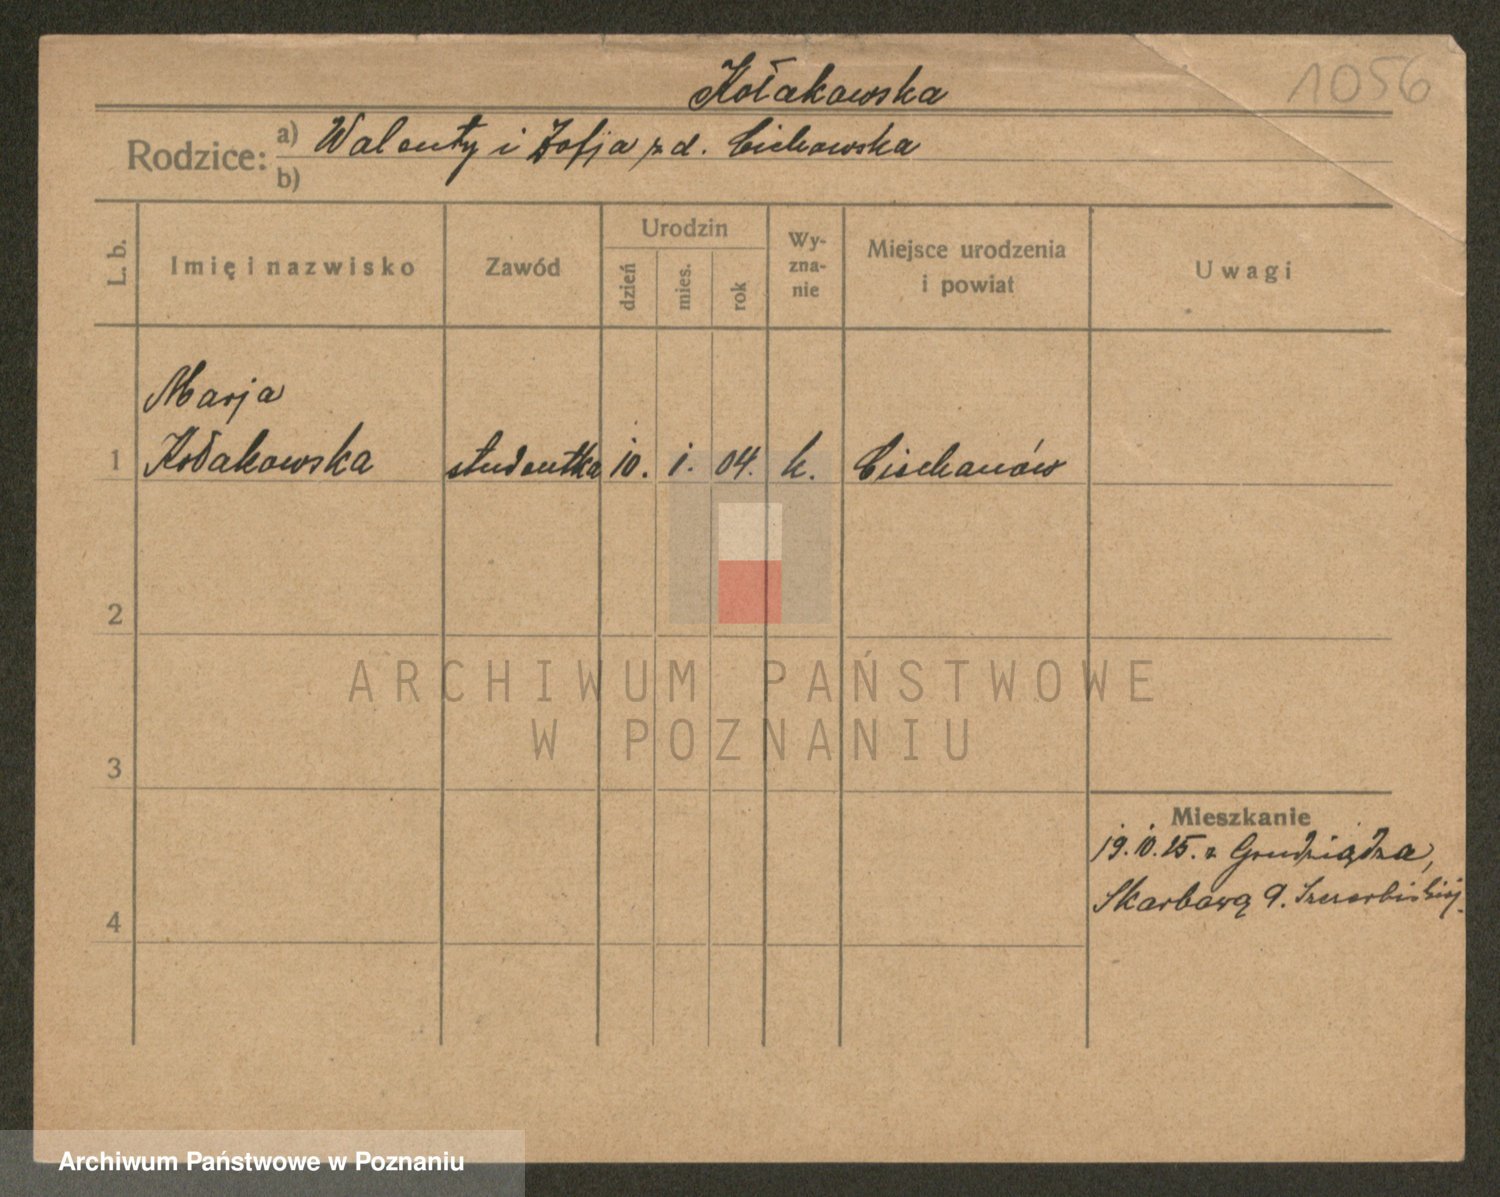 1056
Kołakowska
Rodzice: a) Walenty i Zofja z d. Cichowska
b)
L. b. Imię i nazwisko Zawód Urodzin dzień mies. rok Wy-zna-nie Miejsce urodzenia i powiat Uwagi
Marja
1 Kołakowska studentka 10. 1. 04. k. Ciechanów
2
ARCHIWUM PAŃSTWOWE
W POZNANIU
3
Mieszkanie
19.10.25. z Grudziądza,
Skarbową 9.
4
Archiwum Państwowe w Poznaniu